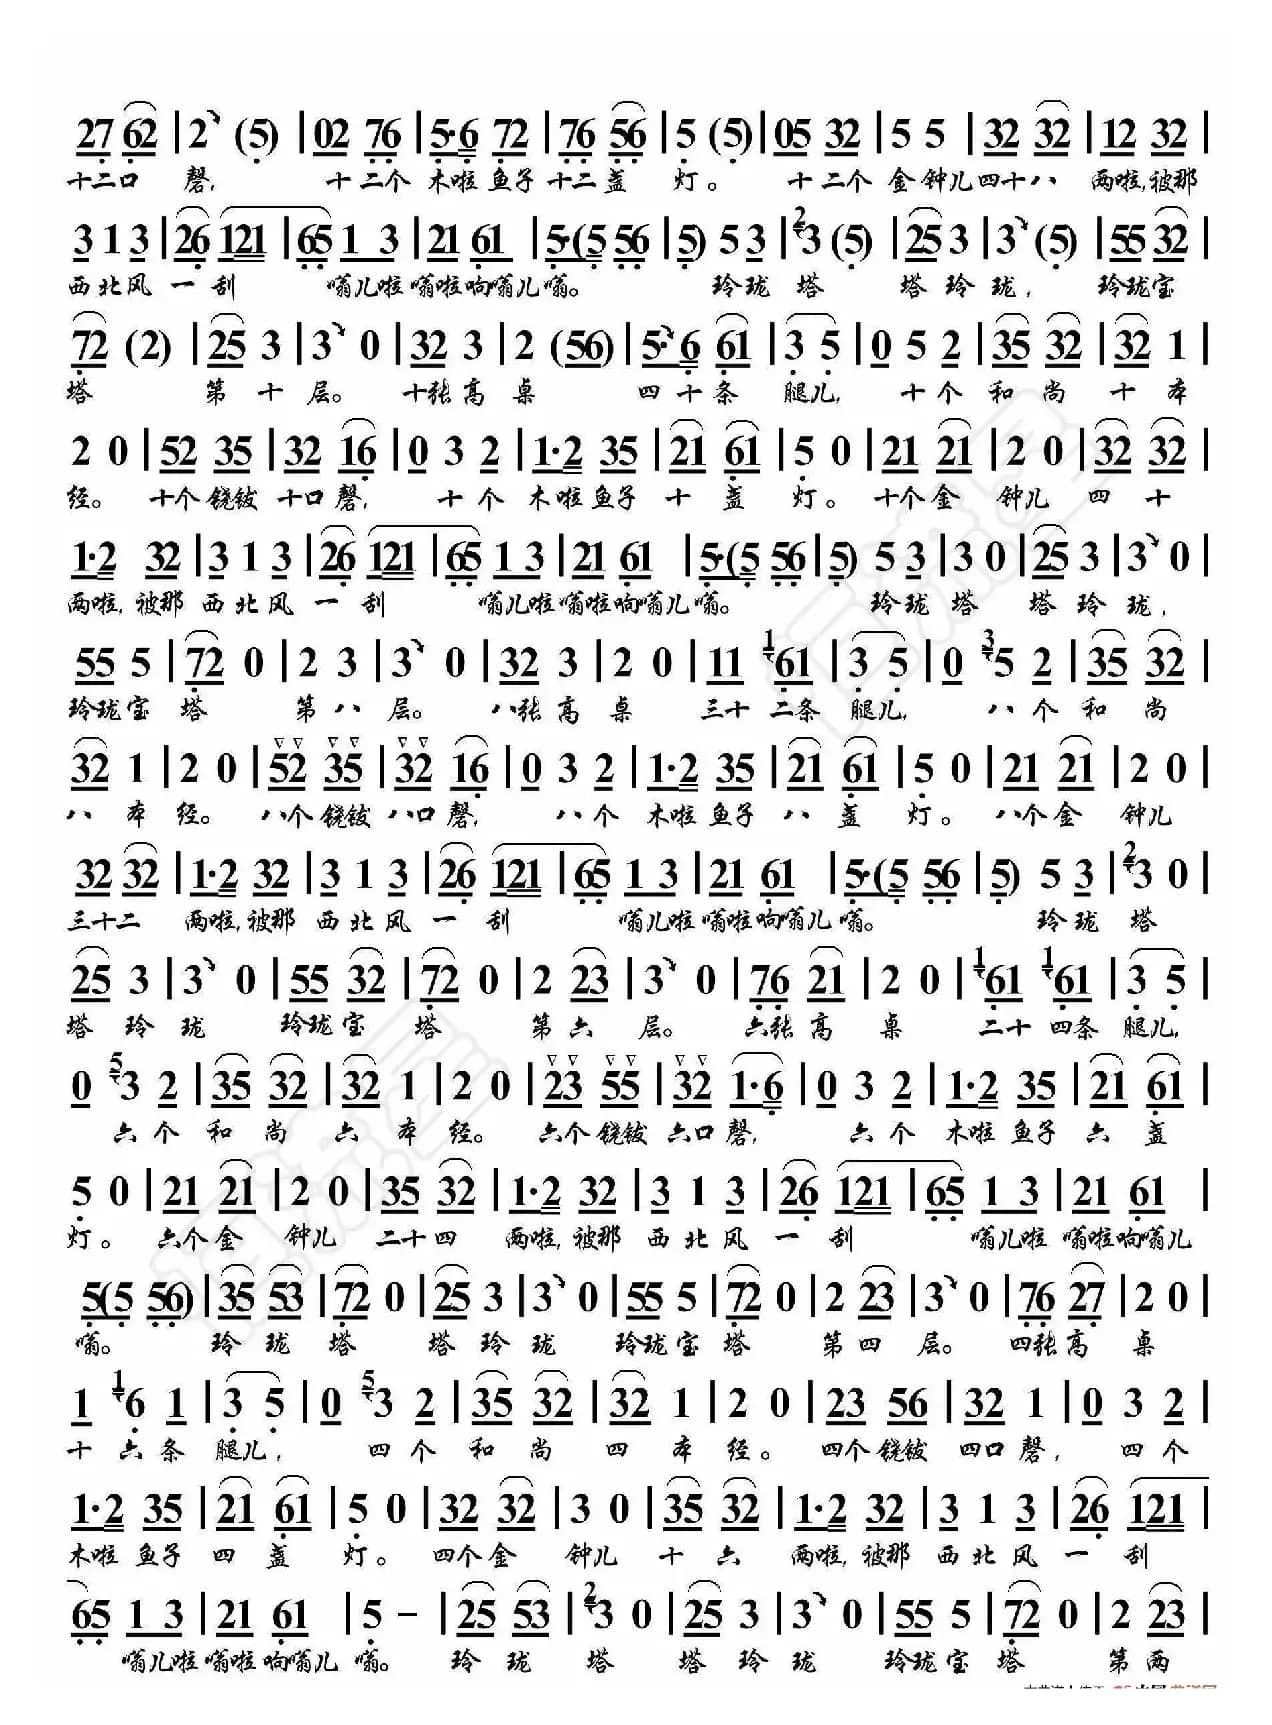 27 62 | 2 (5) | 02 76 | 5·6 72 | 76 56 | 5 (5) | 05 32 | 5 5 | 32 32 | 12 32 |
十二口 磬, 十二个 木啦鱼子十二盏 灯。 十二个金钟儿四十八 两啦,被那
3 1 3 | 26 121 | 65 1 3 | 21 61 | 5·(5 56 | 5) 5 3 | 2 3 (5) | 25 3 | 3 (5) | 55 32 |
西北风一刮 嗡儿啦嗡啦响嗡儿嗡。 玲珑塔 塔玲珑, 玲珑宝
72 (2) | 25 3 | 3 0 | 32 3 | 2 (56) | 5·6 61 | 3 5 | 0 5 2 | 35 32 | 32 1 |
塔 第十层。 十张高桌 四十条 腿儿, 十个和尚十本
2 0 | 52 35 | 32 16 | 0 3 2 | 1·2 35 | 21 61 | 5 0 | 21 21 | 2 0 | 32 32 |
经。 十个铙钹十口磬, 十个木啦鱼子十盏灯。 十个金钟儿四十
1·2 32 | 3 1 3 | 26 121 | 65 1 3 | 21 61 | 5·(5 56 | 5) 5 3 | 3 0 | 25 3 | 3 0 |
两啦,被那西北风一刮 嗡儿啦嗡啦响嗡儿嗡。 玲珑塔 塔玲珑,
55 5 | 72 0 | 2 3 | 3 0 | 32 3 | 2 0 | 11 1 61 | 3 5 | 0 3 5 2 | 35 32 |
玲珑宝塔 第八层。 八张高桌 三十二条腿儿, 八个和尚
32 1 | 2 0 | 52 35 | 32 16 | 0 3 2 | 1·2 35 | 21 61 | 5 0 | 21 21 | 2 0 |
八本经。 八个铙钹八口磬, 八个木啦鱼子八盏灯。 八个金钟儿
32 32 | 1·2 32 | 3 1 3 | 26 121 | 65 1 3 | 21 61 | 5·(5 56 | 5) 5 3 | 2 3 0 |
三十二 两啦,被那西北风一刮 嗡儿啦嗡啦响嗡儿嗡。 玲珑塔
25 3 | 3 0 | 55 32 | 72 0 | 2 23 | 3 0 | 76 21 | 2 0 | 1 61 1 61 | 3 5 |
塔玲珑 玲珑宝塔 第六层。 六张高桌 二十四条腿儿,
0 5 3 2 | 35 32 | 32 1 | 2 0 | 23 55 | 32 1·6 | 0 3 2 | 1·2 35 | 21 61 |
六个和尚六本经。 六个铙钹六口磬, 六个木啦鱼子六盏
5 0 | 21 21 | 2 0 | 35 32 | 1·2 32 | 3 1 3 | 26 121 | 65 1 3 | 21 61 |
灯。 六个金钟儿二十四 两啦,被那西北风一刮 嗡儿啦嗡啦响嗡儿
5(5 56) | 35 53 | 72 0 | 25 3 | 3 0 | 55 5 | 72 0 | 2 23 | 3 0 | 76 27 | 2 0 |
嗡。 玲珑塔 塔玲珑 玲珑宝塔 第四层。 四张高桌
1 1 6 1 | 3 5 | 0 5 3 2 | 35 32 | 32 1 | 2 0 | 23 56 | 32 1 | 0 3 2 |
十六条腿儿, 四个和尚四本经。 四个铙钹四口磬, 四个
1·2 35 | 21 61 | 5 0 | 32 32 | 3 0 | 35 32 | 1·2 32 | 3 1 3 | 26 121 |
木啦鱼子四盏灯。 四个金钟儿十六 两啦,被那西北风一刮
65 1 3 | 21 61 | 5 – | 25 53 | 2 3 0 | 25 3 | 3 0 | 55 5 | 72 0 | 2 23 |
嗡儿啦嗡啦响嗡儿嗡。 玲珑塔 塔玲珑 玲珑宝塔 第两